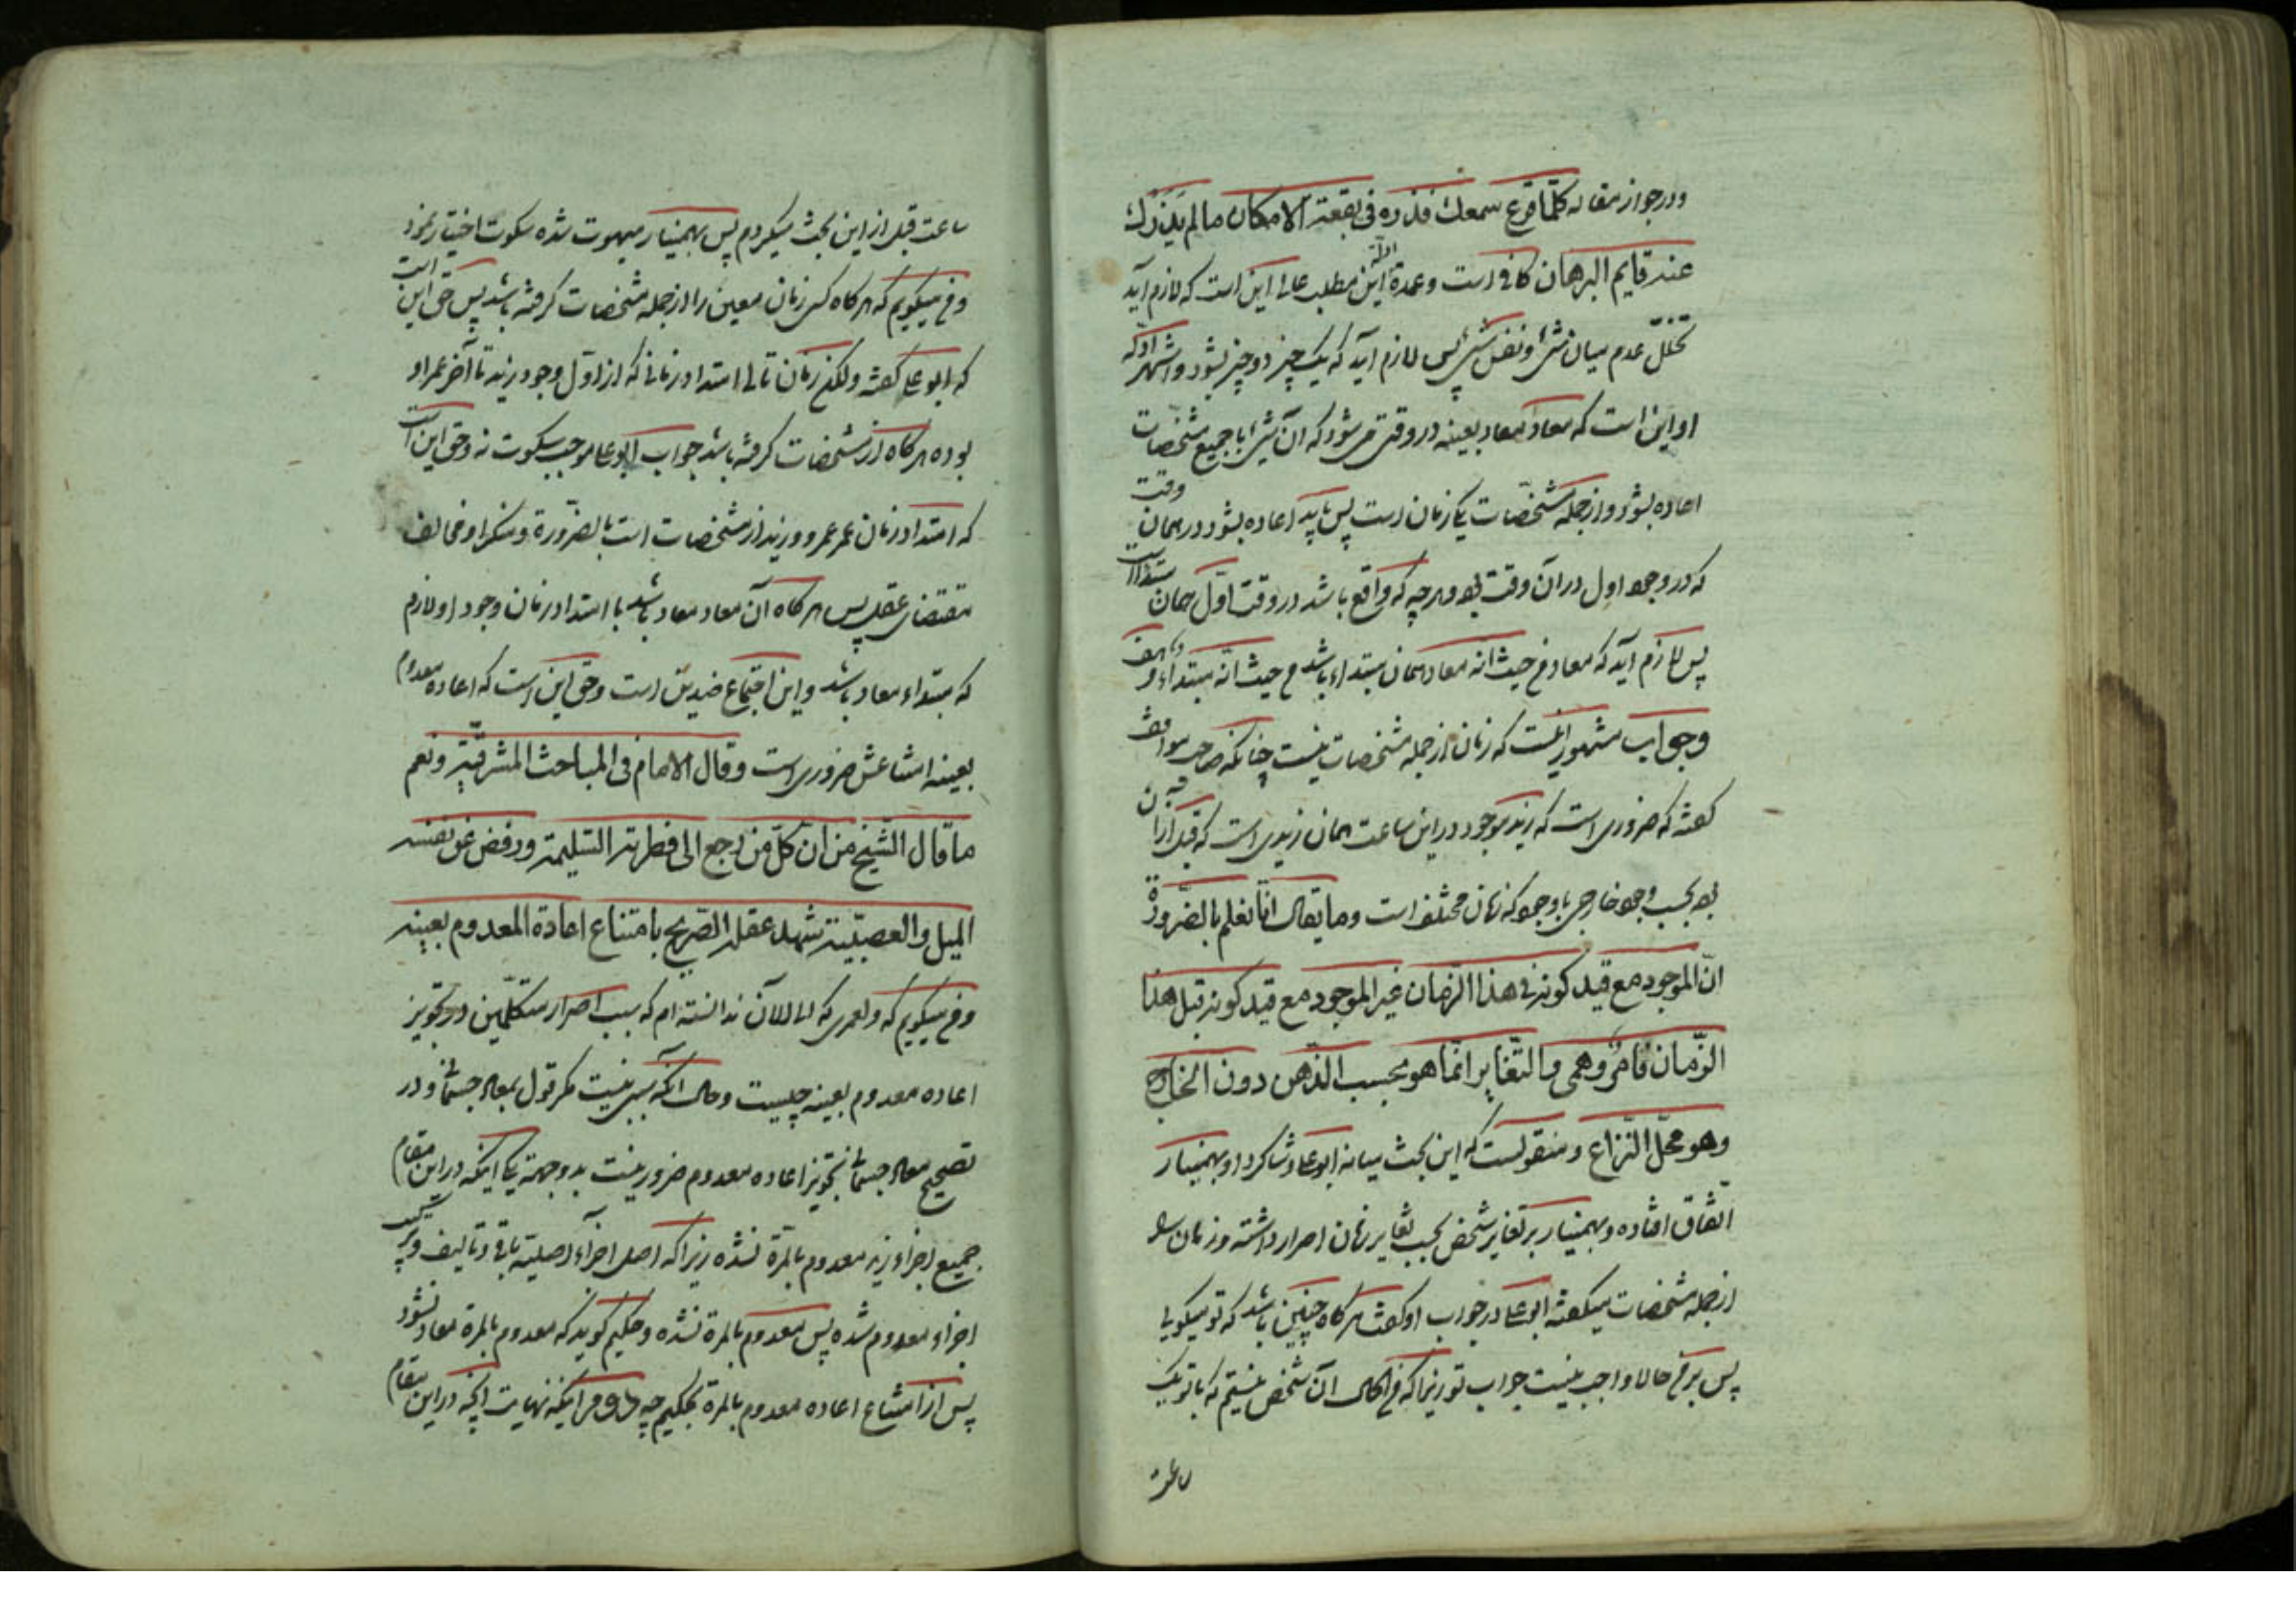 ودر جواز مقاله كلّما قرع سمعك فذروه فى بقعة الامكان ما لم يذرك
عنه قايم البرهان كافى است وعمدة ادلّة اين مطلب عالى اين است كه لازم آيد
تخلّل عدم ميان شئ ونفس شئ پس لازم آيد كه يك چيز دو چيز بشود واشهر ادلّه
او اين است كه معاد معاد بعينه در وقتى مى شود كه آن شئ با جميع مشخّصات
اعاده بشود واز جمله مشخّصات يكى زمان است پس بايد اعاده بشود در همان وقت
كه در وجود اول در آن وقت بود وهرچه كه واقع باشد در وقت اوّل همان مبتداء است
پس لازم آيد كه معاد من حيث انّه معاد همان مبتداء باشد من حيث انّه مبتداء وهذا خلف
وجواب مشهور اينست كه زمان از جمله مشخصات نيست چنانكه صاحب مواقف
گفته كه ضرورى است كه زيد موجود در اين ساعت همان زيدى است كه قبل از آن
بود بحسب وجود خارجى با وجود كه زمان مختلف است وما يقال انّا نعلم بالضّرورة
انّ الموجود مع قيد كونه فى هذا الزّمان غير الموجود مع قيد كونه قبل هذا
الزّمان فامر وهمى والتّغاير انّما هو بحسب الذّهن دون الخارج
وهو محلّ النّزاع ومنقولست كه اين بحث ميانه ابوعلى وشاگرد او بهمنيار
اتّفاق افتاده وبهمنيار بر تغاير شخص بحسب تغاير زمان اصرار داشته وزمان را
از جمله مشخصات ميگفته ابوعلى در جواب او گفت هرگاه چنين باشد كه تو ميگوئى
پس بر من حالا واجب نيست جواب تو زيرا كه من الحال آن شخص نيستم كه با تو يك
ساعت
ساعت قبل از اين بحث ميكردم پس بهمنيار مبهوت شده سكوت اختيار نمود
ومن ميگويم كه هرگاه كسى زمان معين را از جمله مشخصات گرفته باشد پس حق اين است
كه ابوعلى گفته ولكن زمان تالى امتداد زمانى كه از اوّل وجود زيد تا آخر عمر او
بوده هرگاه از مشخصات گرفته باشد جواب ابوعلى موجب سكوت نه وحق اين است
كه امتداد زمان عمر عمرو وزيد از مشخصات است بالضّرورة ومنكر او مخالف
مقتضاى عقل پس هرگاه آن معاد معاد باشد با امتداد زمان وجود او لازم
كه مبتداء معاد باشد واين اجتماع ضدين است وحق اين است كه اعاده معدوم
بعينه امتناعش ضرورى است وقال الامام فى المباحث المشرقيّة ونعم
ما قال الشّيخ من انّ كلّ من رجع الى فطرته السّليمة ورفض عن نفسه
الميل والعصبيّة شهد عقله الصّريح بامتناع اعادة المعدوم بعينه
ومن ميگويم كه ولعمرى كه الى الآن ندانسته ام كه سبب اصرار متكلّمين در تجويز
اعاده معدوم بعينه چيست وحال آنكه سببى نيست مگر قول بمعاد جسمانى ودر
تصحيح معاد جسمانى تجويز اعاده معدوم ضرور نيست بدو جهة يكى اينكه در اين مقام
جميع اجزاء زيد معدوم بالمرّة نشده زيرا كه اصل اجزاء اصليّه باقى وتاليف وتركيب
اجزاء معدوم شده پس معدوم بالمرة نشده وحكيم گويد كه معدوم بالمرة معاد نشود
پس از امتناع اعاده معدوم بالمرة بحكيم چه دويم اينكه نهايت آنچه در اين مقام